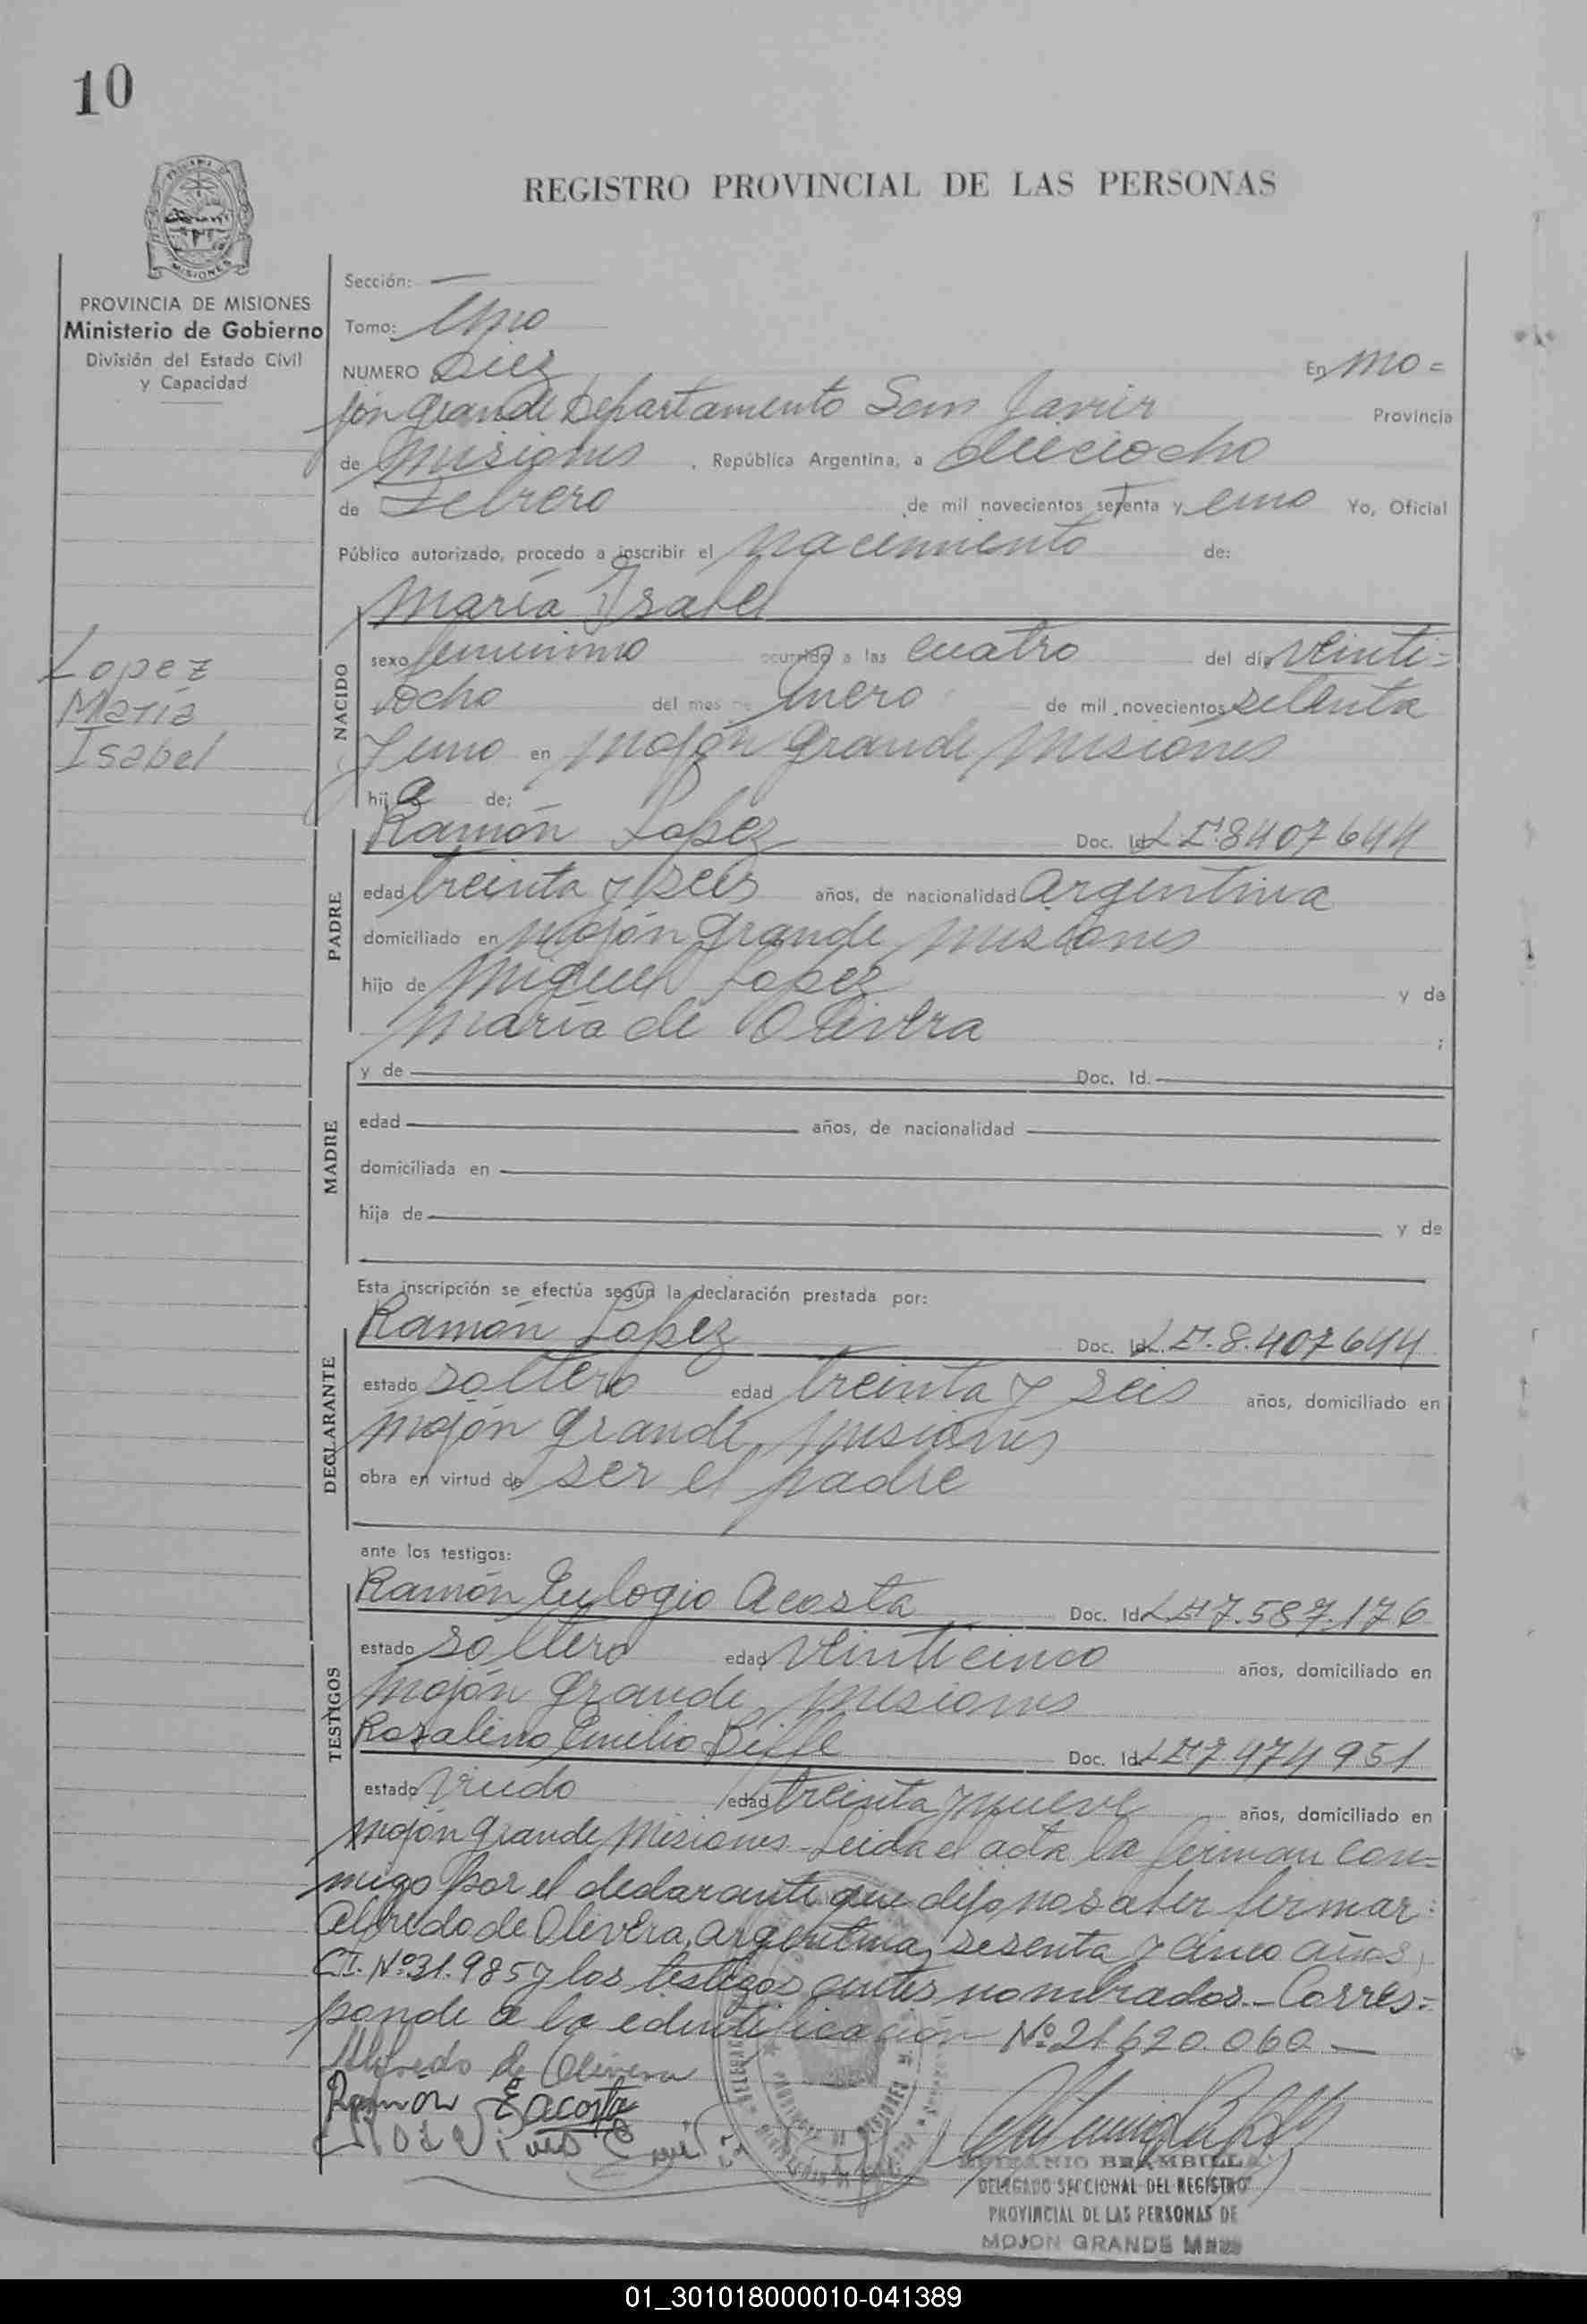 10
REGISTRO PROVINCIAL DE LAS PERSONAS
MISIONES
PROVINCIA DE MISIONES
Ministerio de Gobierno
División del Estado Civil
y Capacidad
Lopez
María
Isabel
Sección: —
Tomo: Uno
NUMERO Diez En Mo=
jón Grande Departamento San Javier Provincia
de Misiones , República Argentina, a dieciocho
de Febrero de mil novecientos setenta y uno Yo, Oficial
Público autorizado, procedo a inscribir el nacimiento de:
NACIDO
María Isabel
sexo femenino ocurrido a las cuatro del día veinti=
ocho del mes de Enero de mil novecientos setenta
y uno en Mojón Grande, Misiones
hija de:
PADRE
Ramón Lopez Doc. Id. L.E. 8407644
edad treinta y seis años, de nacionalidad argentina
domiciliado en Mojón Grande, Misiones
hijo de Miguel Lopez y de
María de Olivera ;
MADRE
y de — Doc. Id. —
edad — años, de nacionalidad —
domiciliada en —
hija de — y de
Esta inscripción se efectúa según la declaración prestada por:
DECLARANTE
Ramón Lopez Doc. Id. L.E. 8.407644
estado soltero edad treinta y seis años, domiciliado en
Mojón Grande, Misiones
obra en virtud de ser el padre
ante los testigos:
TESTIGOS
Ramón Eulogio Acosta Doc. Id. L.E. 7.587.176
estado soltero edad veinticinco años, domiciliado en
Mojón Grande, Misiones
Rosalino Emilio Doc. Id. L.E. 7.474951
estado viudo edad treinta y nueve años, domiciliado en
Mojón Grande, Misiones.- Leida el acta la firman con=
migo por el declarante que dijo no saber firmar:
Alfredo de Olivera, argentina, sesenta y cinco años,
C.I. Nº 31.985 y los testigos antes nombrados.- Corres=
ponde a la identificación Nº 21.620.060 —
Alfredo de Olivera
Ramón E Acosta
BRAMBILLA
DELEGADO SECCIONAL DEL REGISTRO
PROVINCIAL DE LAS PERSONAS DE
MOJON GRANDE
01_301018000010-041389